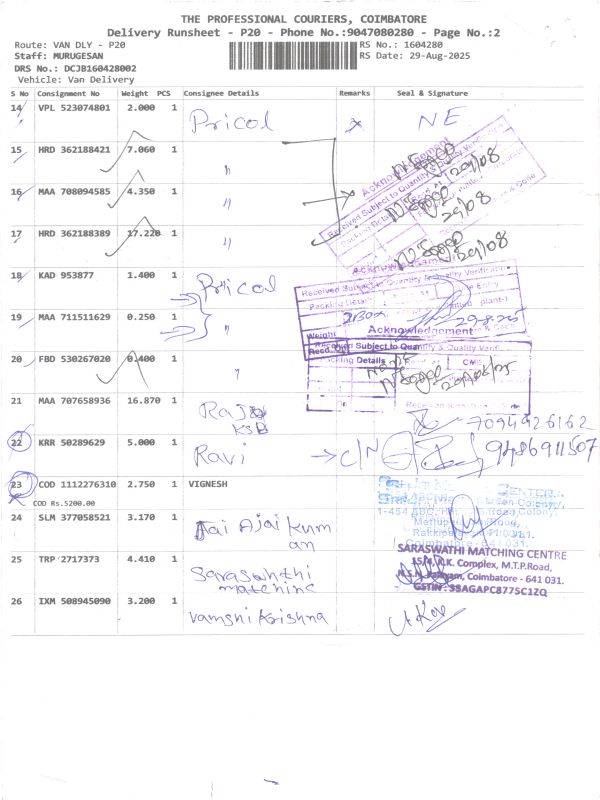 THE PROFESSIONAL COURIERS, COIMBATORE
Delivery Runsheet - P20 - Phone No.:9047080280 - Page No.:2
Route: VAN DLY - P20
RS No.: 1604280
Staff: MURUGESAN
RS Date: 29-Aug-2025
DRS No.: DCJB160428002
Vehicle: Van Delivery
S No Consignment No Weight PCS Consignee Details Remarks Seal & Signature
14 VPL 523074801 2.000 1 Pricol x NE
15 HRD 362188421 7.060 1 "
Acknowledgement
Received Subject to Quantity & Quality Verification
29/08
16 MAA 708094585 4.350 1 "
29/08
17 HRD 362188389 17.220 1 "
29/08
18 KAD 953877 1.400 1 Pricol
Received Subject to Quantity & Quality Verification
19 MAA 711511629 0.250 1 "
2 Box
Weight
29-8-25
Acknowledgement
Received Subject to Quantity & Quality
20 FBD 530267020 0.400 1 "
Packing Details
21 MAA 707658936 16.870 1 Raja
KSB
7094926162
22 KRR 50289629 5.000 1 Ravi → C/N
9486911507
23 COD 1112276310 2.750 1 VIGNESH
COD Rs.5200.00
24 SLM 377058521 3.170 1 Jai Ajai Kum
an
Coimbatore - 641 031.
25 TRP 2717373 4.410 1 Saraswathi
matching
SARASWATHI MATCHING CENTRE
15/4, R.K. Complex, M.T.P.Road,
N.S.N. Palayam, Coimbatore - 641 031.
GSTIN : 33AGAPC8775C1ZQ
26 IXM 508945090 3.200 1 Vamshi Krishna